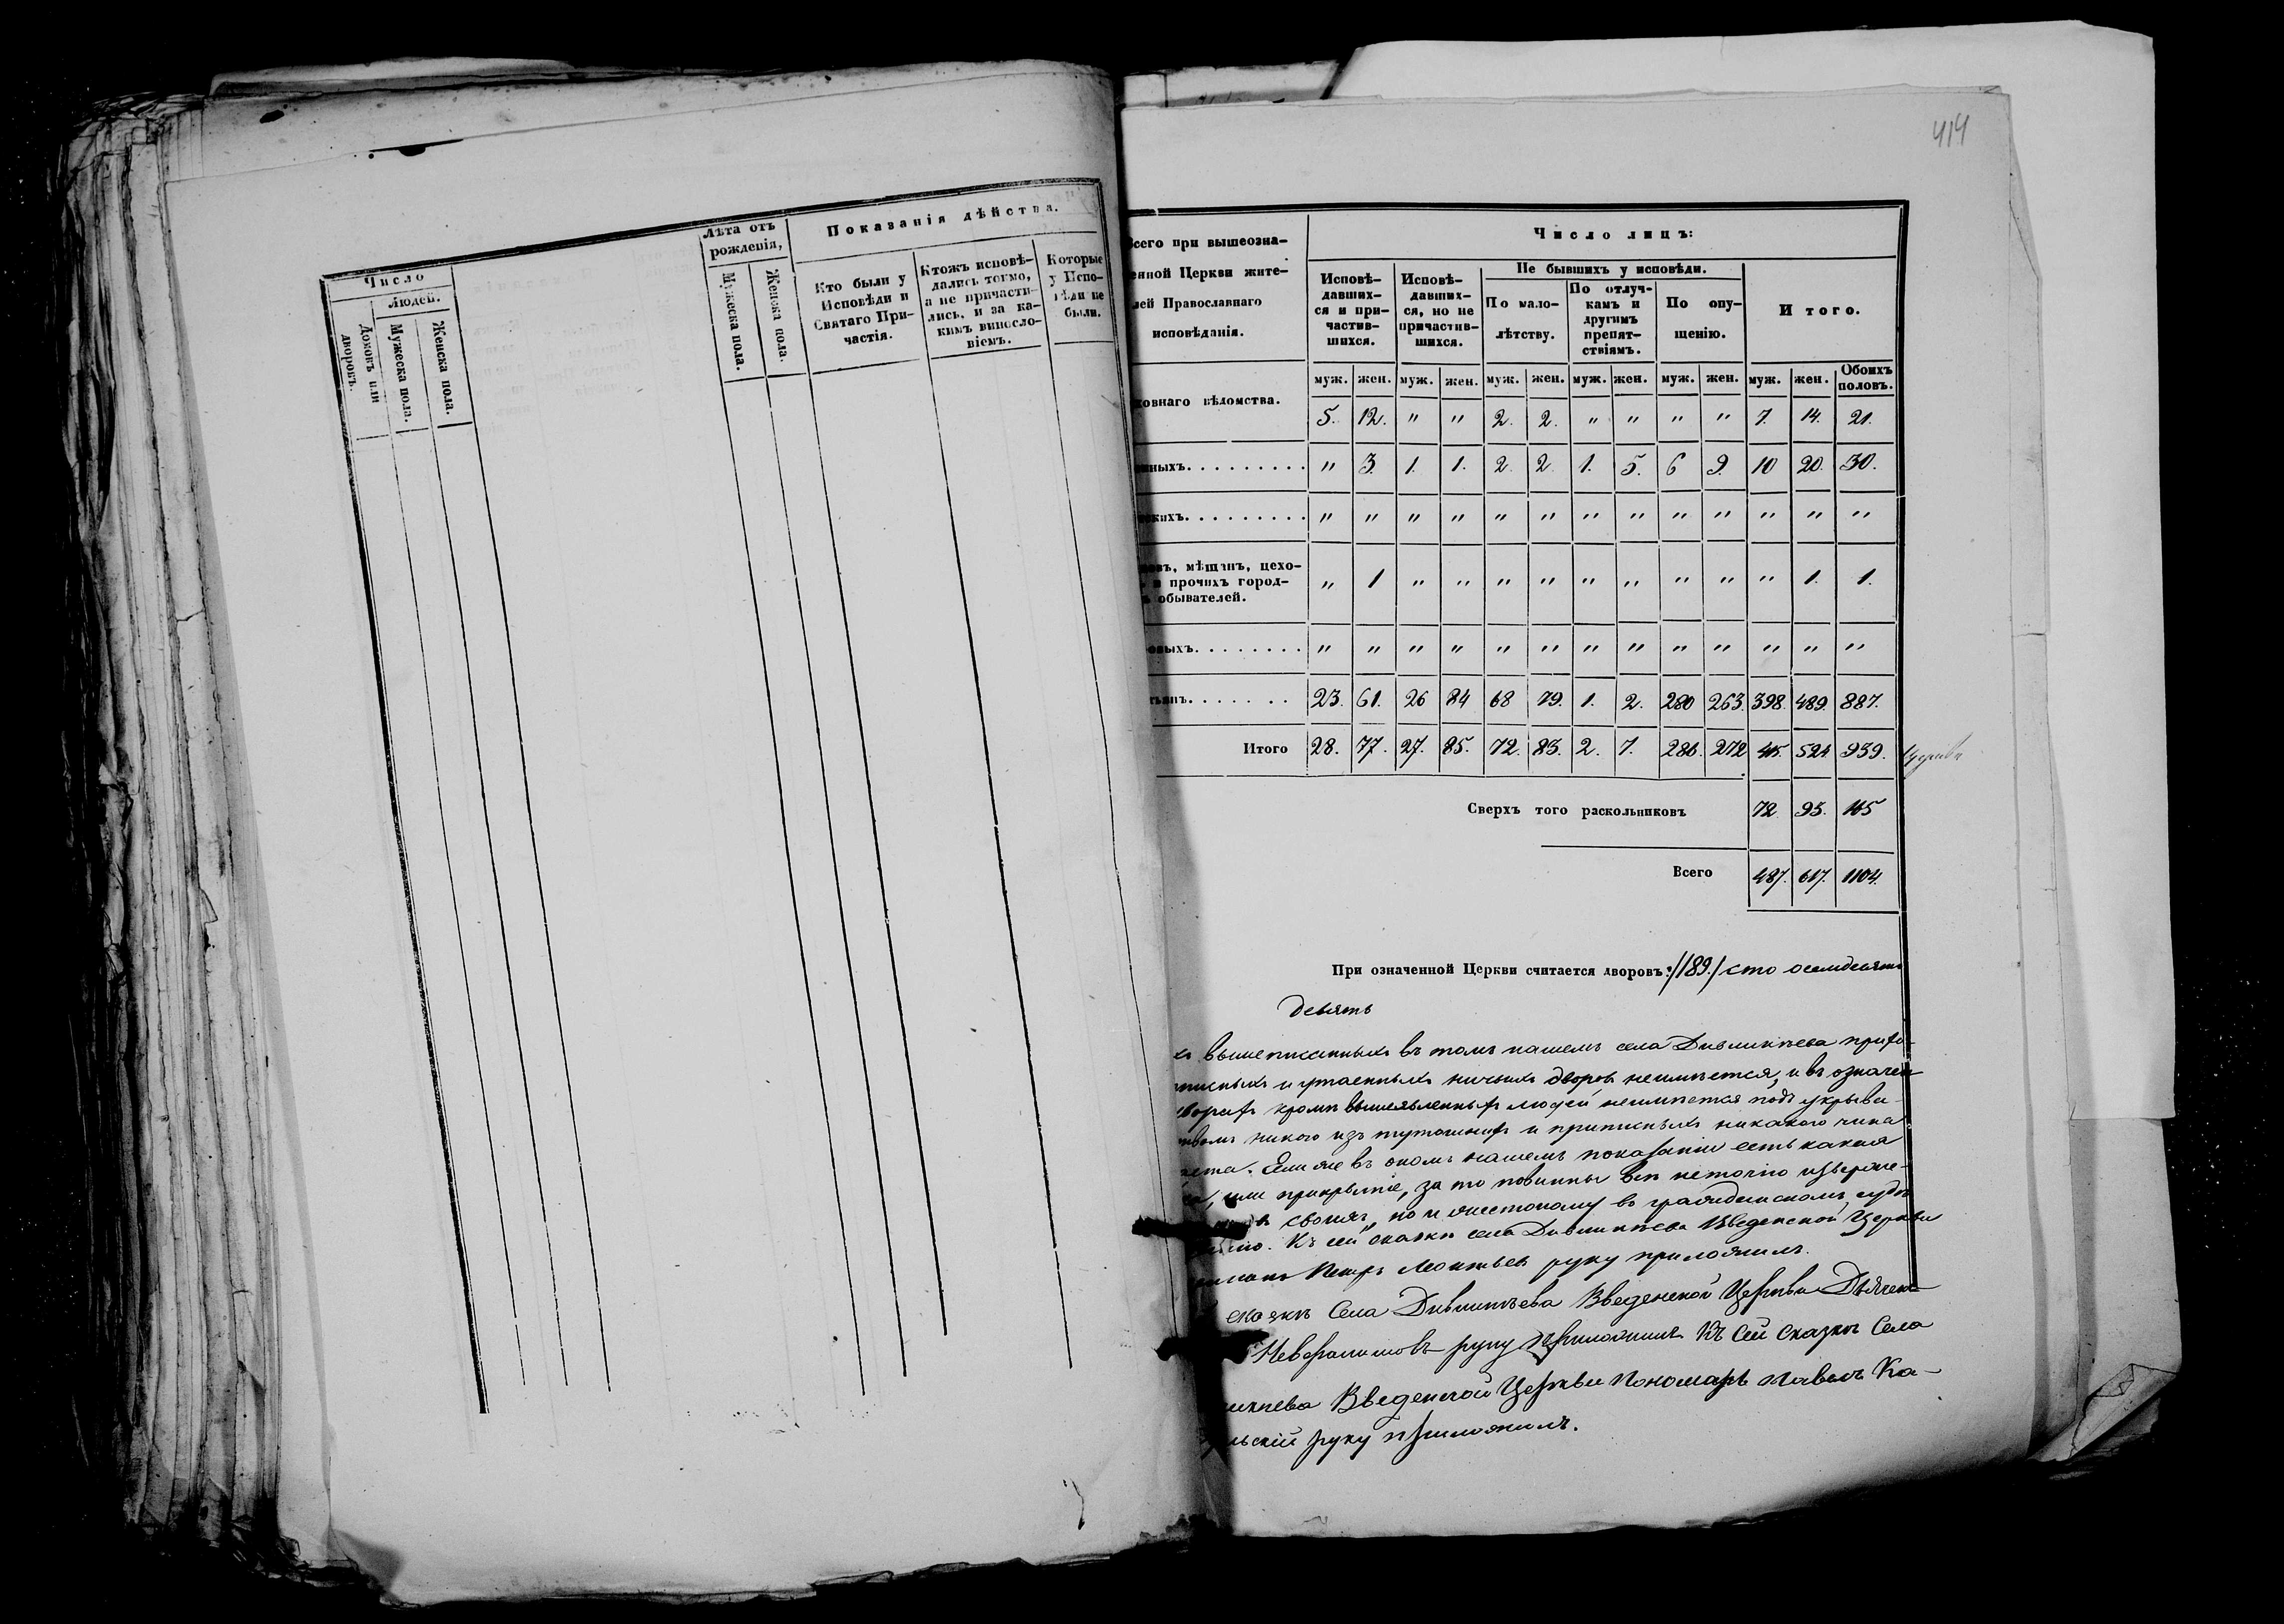 414
Число
Людей.
Домовъ или дворовъ.
Мужеска пола.
Женска пола.
Лѣта отъ рожденія,
Мужеска пола.
Женска пола.
Показанія дѣйства.
Кто были у
Исповѣди и
Святаго При-
частія.
Ктожъ исповѣ-
дались токмо,
а не причасти-
лись, и за ка-
кимъ винослo-
віемъ.
Которые
у Испо-
вѣди не
были.
Всего при вышеозна-
енной Церкви жите-
лей Православнаго
исповѣданія.
Число лицъ:
Исповѣ-
давших-
ся и при-
частив-
шихся.
Исповѣ-
давших-
ся, но не
причастив-
шихся.
Не бывшихъ у исповѣди.
По мало-
лѣтству.
По отлуч-
камъ и
другимъ
препят-
ствіямъ.
По опу-
щенію.
Итого.
муж. жен. муж. жен. муж. жен. муж. жен. муж. жен. муж. жен. Обоихъ половъ.
ховнаго вѣдомства. 5. 12. " " 2. 2. " " " " 7. 14. 21.
нныхъ. " 3. 1. 1. 2. 2. 1. 5. 6 9. 10 20. 30.
скихъ. " " " " " " " " " " " " "
овъ, мѣщанъ, цехо-
и прочихъ город-
обывателей. " 1 " " " " " " " " " 1. 1.
овыхъ. " " " " " " " " " " " " "
тьянъ. 23. 61. 26 84 68 79. 1. 2. 280 263. 398. 489. 887.
Итого 28. 77. 27. 85. 72. 83. 2. 7. 286. 272 415. 524. 939.
Сверхъ того раскольниковъ 72. 93. 165
Всего 487. 617. 1104.
При означенной Церкви считается дворовъ: /189./ сто осемдесятъ
девять
вышеписанныхъ въ томъ нашемъ села Дивликѣева прихо-
писныхъ и утаенныхъ ничьихъ дворовъ неимѣется, и въ означен
ворахъ кромѣ вышеявленныхъ людей неимѣется подъ укрыва-
никого изъ тутошнихъ и приписныхъ никакого чина
Если же въ ономъ нашемъ показаніи есть какая
или прикрытіе, за то повинны всѣ неточію изверже-
своихъ, но и жестокому въ гражданскомъ судѣ
Къ сей сказкѣ села Дивликѣева Введенской Церкви
Петръ Леонтьевъ руку приложилъ.
сказкѣ Села Дивликѣева Введенской Церкви Дьячекъ
руку приложилъ Къ сей сказкѣ Села
икѣева Введенской Церкви Пономарь Павелъ Ка-
льскій руку приложилъ.